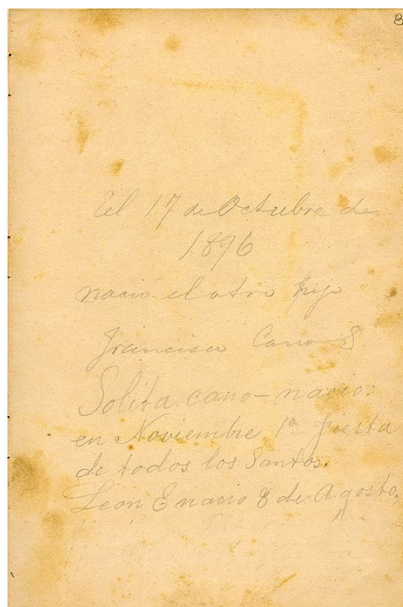 8
el 17 de Octubre de
1896
nació el otro hijo
Francisco Cano S.
Solita cano - nacio
en Noviembre 1a fiesta
de todos los Santos.
Leon E nacio 8 de Agosto,